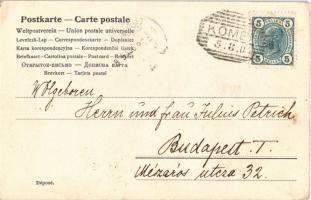 Postkarte — Carte postale
Weltpostverein — Union postale universelle
Levelező-Lap — Correspondenzkarte — Dopisnice
Karta korespondencyjna — Korespondenční lístek
Briefkaart — Cartolina postale — Postcard — Brefkort
Открытое письмо — Дописна карта
Brevkort — Tarjeta postal
KOME
5.8.0
5 5
5 5
Wolgeboren
Herrn und frau Julius Petrich
Budapest. I.
Mézáros utcza 32.
Déposé.